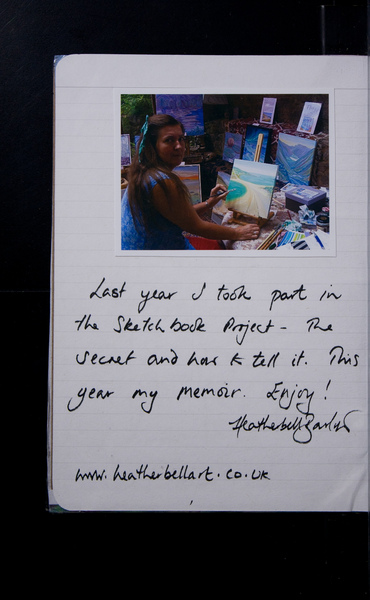 Last year I took part in
the Sketchbook Project - The
secret and how to tell it. This
year my memoir. Enjoy!
www.heatherbellart.co.uk